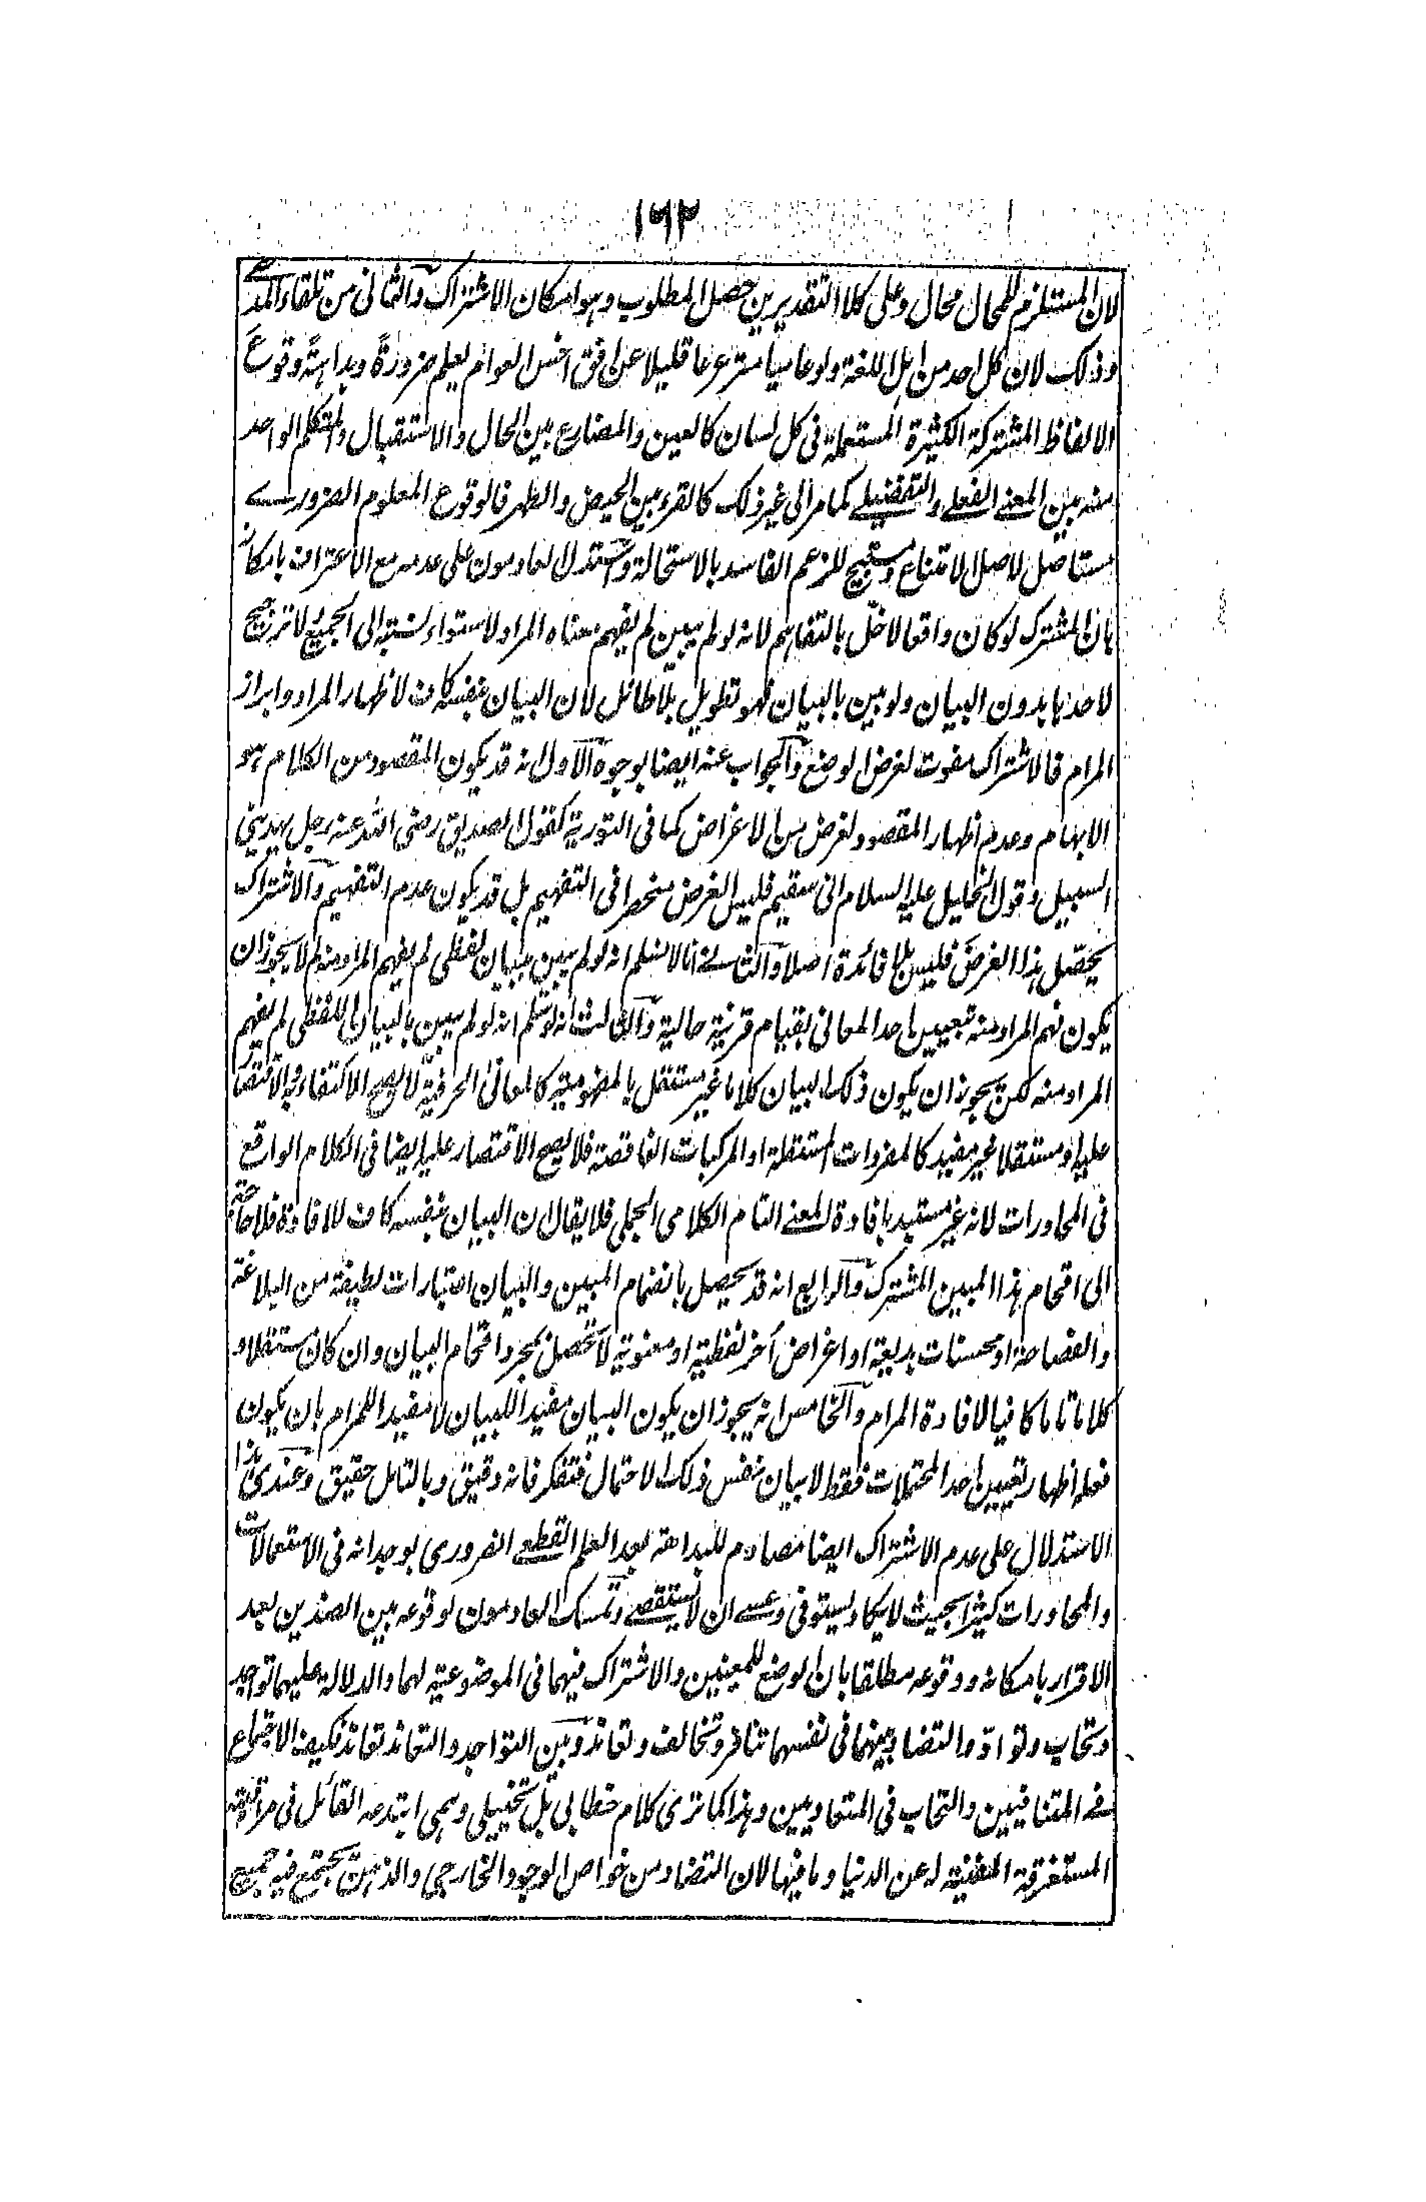 ١٦٢
لان المستلزم للمحال محال وعلى كلا التقديرين حصل المطلوب وهو امكان الاشتراك والثانى من تلقاء المدعے
وذلك لان كل احد من اهل اللغة ولو عاميا مترعرعا قليلا عن افق اخس العوام يعلم ضرورةً وبداهةً وقوع
الالفاظ المشتركة الكثيرة المستعملة فى كل لسان كالعين والمضارع بين الحال والاستقبال والمتكلم الواحد
منه بين المعنے الفعلے والتفضيلے كما مر الى غير ذلك كالقرء بين الحيض والطهر فالوقوع المعلوم الضرورے
مستاصل لاصل الامتناع ومبيح للزعم الفاسد بالاستحالة واستدل العادمون على عدمه مع الاعتراف بامكانه
بان المشترك لو كان واقعا لاخلّ بالتفاهم لانه لو لم يبين لم يفهم معناه المراد لاستواء نسبته الى الجميع لا ترجيح
لاحدها بدون البيان ولو بين بالبيان فهو تطويل بلا طائل لان البيان بنفسه كاف لاظهار المراد وابراز
المرام فالاشتراك مفوت لغرض الوضع والجواب عنه ايضا بوجوه الاول انه قد يكون المقصود من الكلام هو
الابهام وعدم اظهار المقصود لغرض من الاغراض كما فى التورية كقول الصديق رضى الله عنه رجل يهدينى
السبيل وقول الخليل عليه السلام انى سقيم فليس الغرض منحصرا فى التفهيم بل قد يكون عدم التفهيم والاشتراك
يحصّل هذا الغرض فليس بلا فائدة اصلا والثانے انا لا نسلم انه لو لم يبين ببيان لفظى لم يفهم المراد منه لم لا يجوز ان
يكون فهم المراد منه بتعيين احد المعانى بقيام قرينة حالية والثالث انه لو سلم انه لو لم يبين بالبيان اللفظى لم يفهم
المراد منه لكن يجوز ان يكون ذلك البيان كلاما غير مستقل بالمفهومية كالمعانى الحرفية لا يصح الاكتفاء به والاقتصار
عليه او مستقلا غير مفيد كالمفردات المستقلة او المركبات الناقصة فلا يصح الاقتصار عليه ايضا فى الكلام الواقع
فى المحاورات لانه غير مستبد بافادة المعنے التام الكلامى الجملى فلا يقال ان البيان بنفسه كاف للافادة فلا حاجة
الى اقحام هذا المبين المشترك والرابع انه قد يحصل بانضمام المبين والبيان اعتبارات لطيفة من البلاغة
والفصاحة او محسنات بديعة او اغراض أخر لفظية او معنوية لا تحصل بمجرد اقحام البيان وان كان مستقلا و
كلاما تاما كافيا لافادة المرام والخامس انه يجوز ان يكون البيان مفيدا للبيان لا مفيدا للمرام بان يكون
فعله اظهار تعيين احد المحتملات فقط لا بيان نفس ذلك الاحتمال فتفكر فانه دقيق وبالتامل حقيق وعندى هذا
الاستدلال على عدم الاشتراك ايضا مصادم للبداهة بعد العلم القطعے الضرورى بوجدانه فى الاستعمالات
والمحاورات كثيرا بحيث لا يكاد يستوفى وعسے ان لا يستقصے وتمسك العادمون لوقوعه بين الضدين بعد
الاقرار بامكانه ووقوعه مطلقا بان الوضع للمعنيين والاشتراك فيهما فى الموضوعية لهما والدلالة عليهما تواجد
وتحاب وتوادّ والتضاد بينهما فى نفسهما تنافر وتخالف وتعاند وبين التواجد والتعاند تعاند فكيف الاجتماع
فے المتنافيين والتحاب فى المتعاديين وهذا كما ترى كلام خطابى بل تخييلى وهمى ابتدعه القائل فى مراقبته
المستغرقة المفنية له عن الدنيا وما فيها لان التضاد من خواص الوجود الخارجى والذهن يجتمع فيه جميع